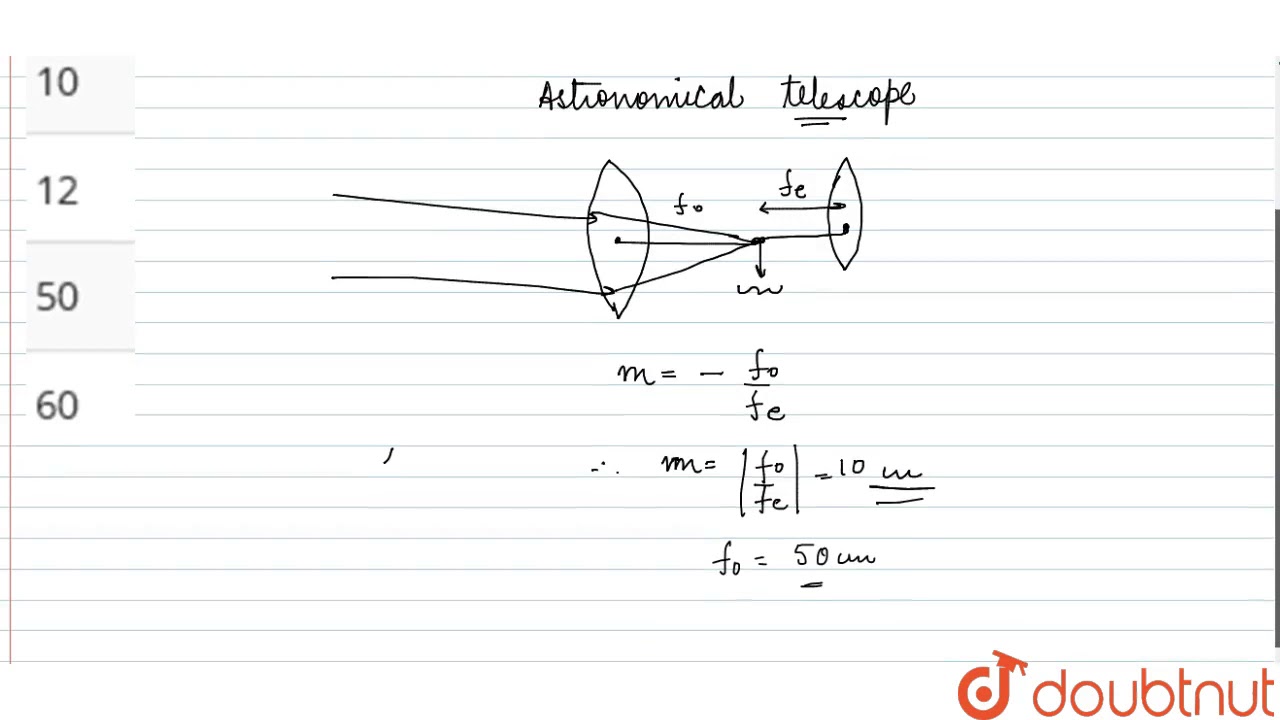 10
12
50
60
Astronomical telescope
fo
fe
m = - fo/fe
∴ m = |fo/fe| = 10 cm
fo = 50 cm
doubtnut